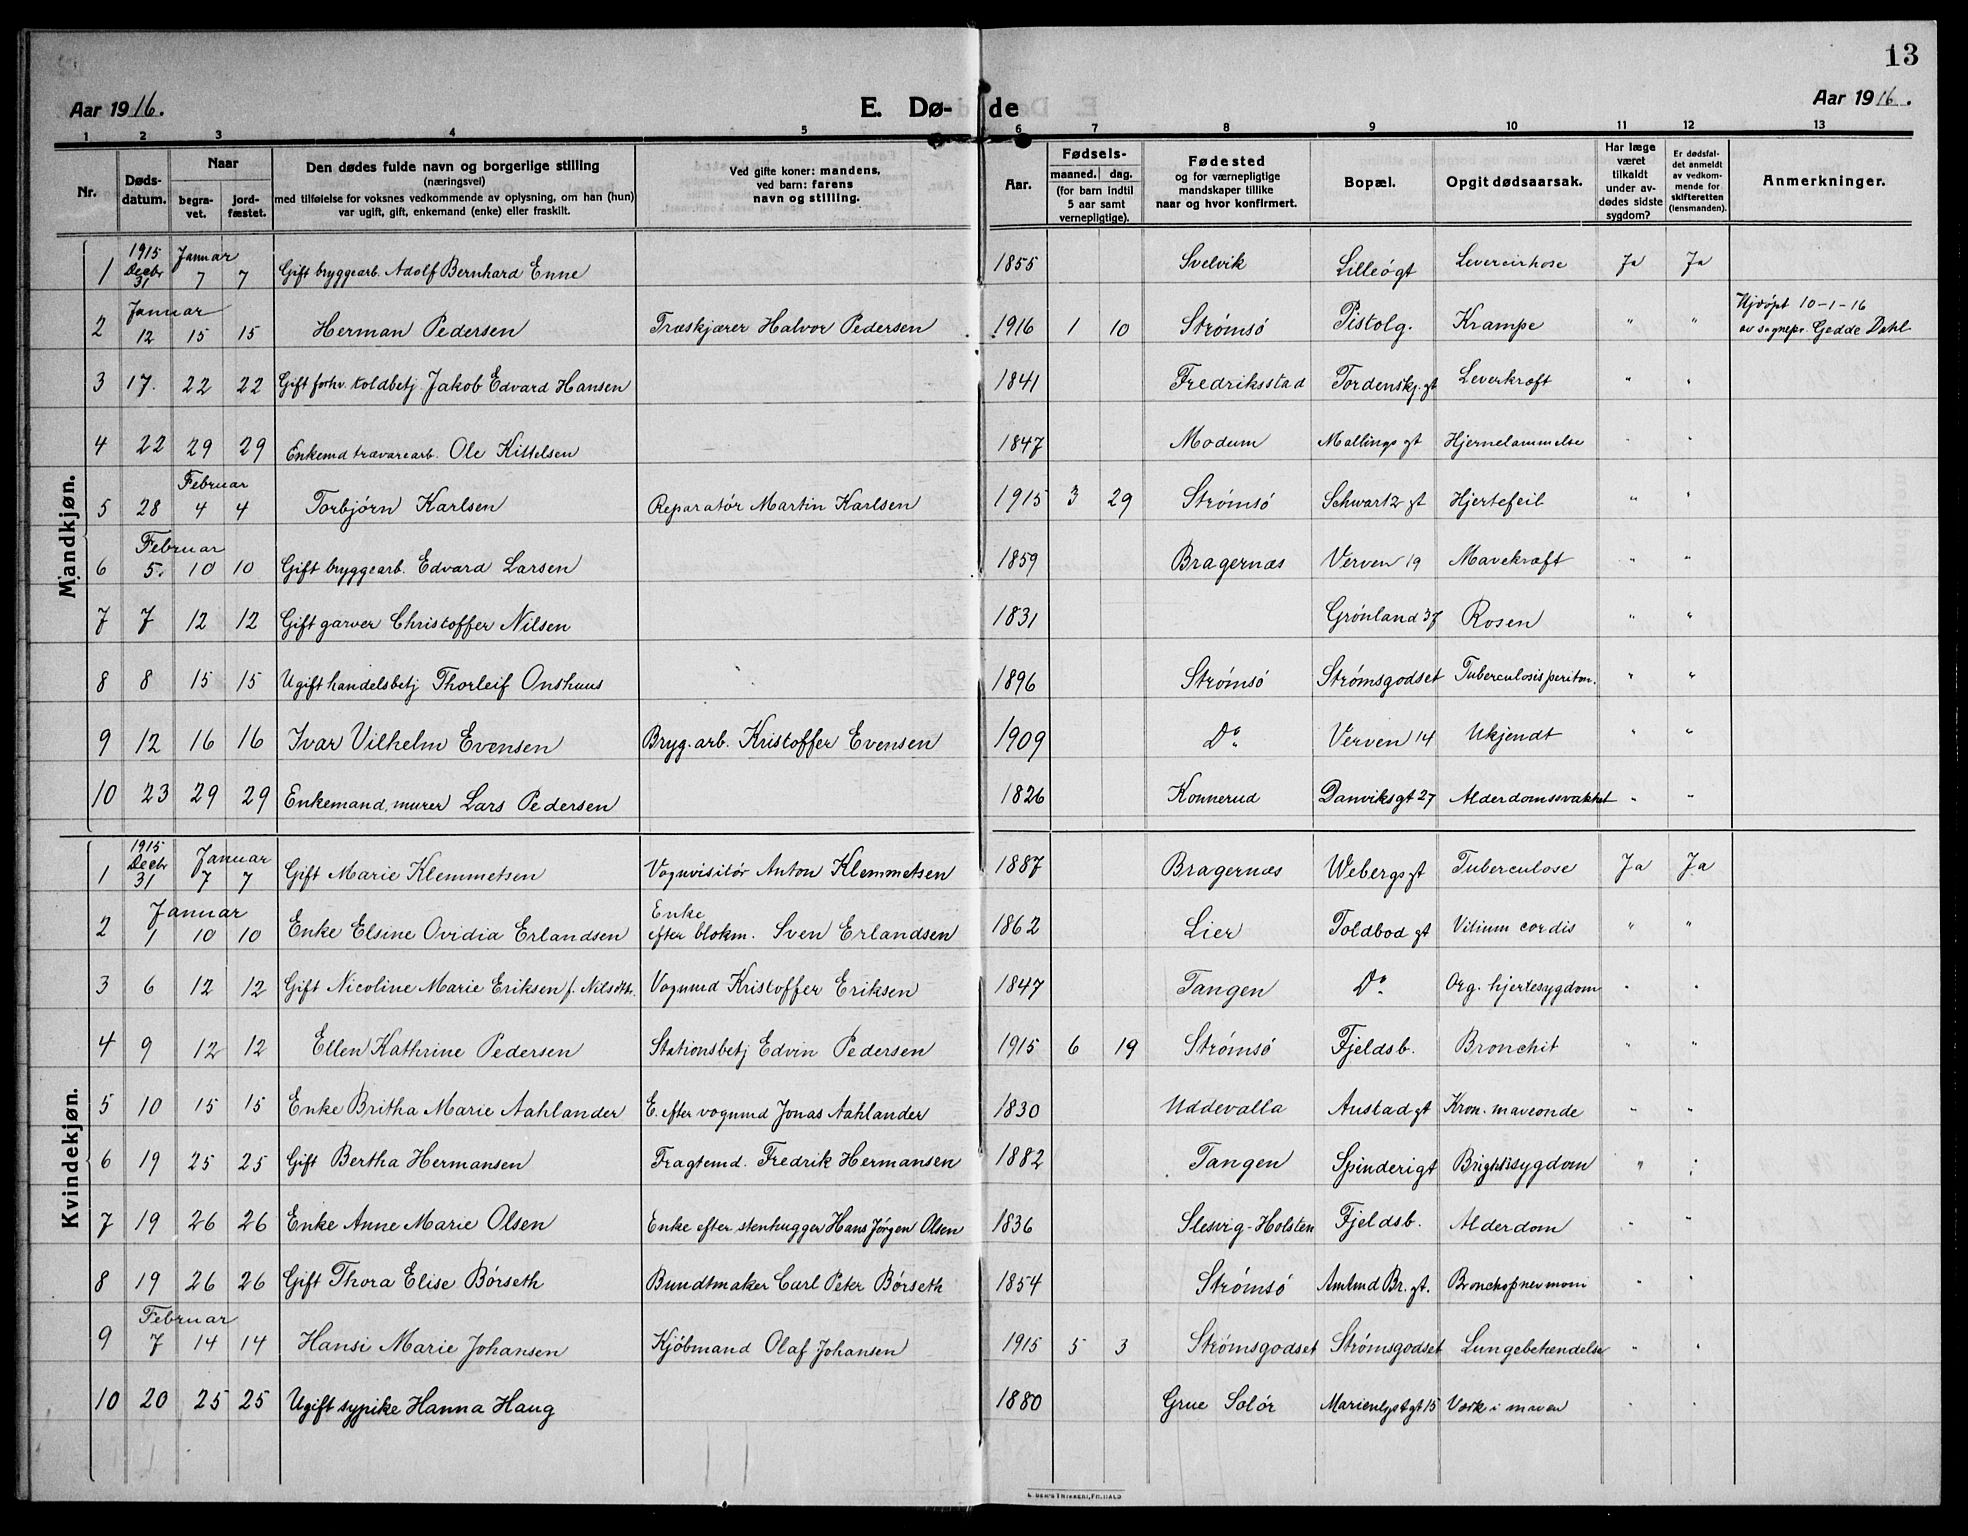 13
Aar 1916. E. Dø- de Aar 1916.
1 2 3 4 5 6 7 8 9 10 11 12 13
Nr. Døds-datum. Naar begra-vet. jord-fæstet. Den dødes fulde navn og borgerlige stilling (næringsvei) med tilføielse for voksnes vedkommende av oplysning, om han (hun) var ugift, gift, enkemand (enke) eller fraskilt. Ved gifte koner: mandens, ved barn: farens navn og stilling. Aar. Fødsels- maaned. dag. (for barn indtil 5 aar samt vernepligtige). Fødested og for værnepligtige mandskaper tillike naar og hvor konfirmert. Bopæl. Opgit dødsaarsak. Har læge været tilkaldt under av-dødes sidste sygdom? Er dødsfal-det anmeldt av vedkom-mende for skifteretten (lensmanden). Anmerkninger.
Mandkjøn.
1 1915 Decbr 31 Januar 7 7 Gift bryggearb. Adolf Bernhard Enne 1855 Svelvik Lilleøgt Levercirhose Ja Ja
2 Januar 12 15 15 Herman Pedersen Træskjærer Halvor Pedersen 1916 1 10 Strømsø Pistolg. Krampe " " Hjdøpt 10-1-16 av sognepr. Gedde Dahl
3 17. 22 22 Gift forhv. toldbetj. Jakob Edvard Hansen 1841 Fredriksstad Tordenskj. gt Leverkræft " "
4 22 29 29 Enkemd trævarearb. Ole Kittelsen 1847 Modum Mallings gt Hjernelammelse " "
5 28 Februar 4 4 Torbjørn Karlsen Reparatør Martin Karlsen 1915 3 29 Strømsø Schwartz gt Hjertefeil " "
6 Februar 5. 10 10 Gift bryggearb. Edvard Larsen 1859 Bragernæs Verven 19 Mavekræft " "
7 7 12 12 Gift garver Christoffer Nilsen 1831 Grønland 37 Rosen " "
8 8 15 15 Ugift handelsbetj Thorleif Onshuus 1896 Strømsø Strømsgodset Tuberculosis periton. " "
9 12 16 16 Ivar Vilhelm Evensen Bryg. arb. Kristoffer Evensen 1909 Do Verven 14 Ukjendt " "
10 23 29 29 Enkemand, murer Lars Pedersen 1826 Konnerud Danviksgt 27 Alderdomssvakhet " "
Kvindekjøn.
1 1915 Decbr 31 Januar 7 7 Gift Marie Klemmetsen Vognvisitør Anton Klemmetsen 1887 Bragernæs Webergs gt Tuberculose Ja Ja
2 Januar 1 10 10 Enke Elsine Ovidia Erlandsen Enke efter blokm. Sven Erlandsen 1862 Lier Toldbod gt Vitium cordis " "
3 6 12 12 Gift Nicoline Marie Eriksen f. Nilsdtr. Vognmd Kristoffer Eriksen 1847 Tangen Do Org. hjertesygdom " "
4 9 12 12 Ellen Kathrine Pedersen Stationsbetj Edvin Pedersen 1915 6 19 Strømsø Fjeldsb. Bronchit " "
5 10 15 15 Enke Britha Marie Aahlander E. efter vognmd Jonas Aahlander 1830 Uddevalla Austad gt Kron. maveonde " "
6 19 25 25 Gift Bertha Hermansen Fragtemd. Fredrik Hermansen 1882 Tangen Spinderigt Brightssygdom " "
7 19 26 26 Enke Anne Marie Olsen Enke efter stenhugger Hans Jørgen Olsen 1836 Slesvig-Holsten Fjeldsb. Alderdom " "
8 19 26 26 Gift Thora Elise Børseth Bundtmaker Carl Peter Børseth 1854 Strømsø Amtmd Br. gt. Bronchopnevmoni " "
9 Februar 7 14 14 Hansi Marie Johansen Kjøbmand Olaf Johansen 1915 5 3 Strømsgodset Strømsgodset Lungebetendelse " "
10 20 25 25 Ugift sypike Hanna Haug 1880 Grue Solør Marienlystgt 15 Værk i maven " "